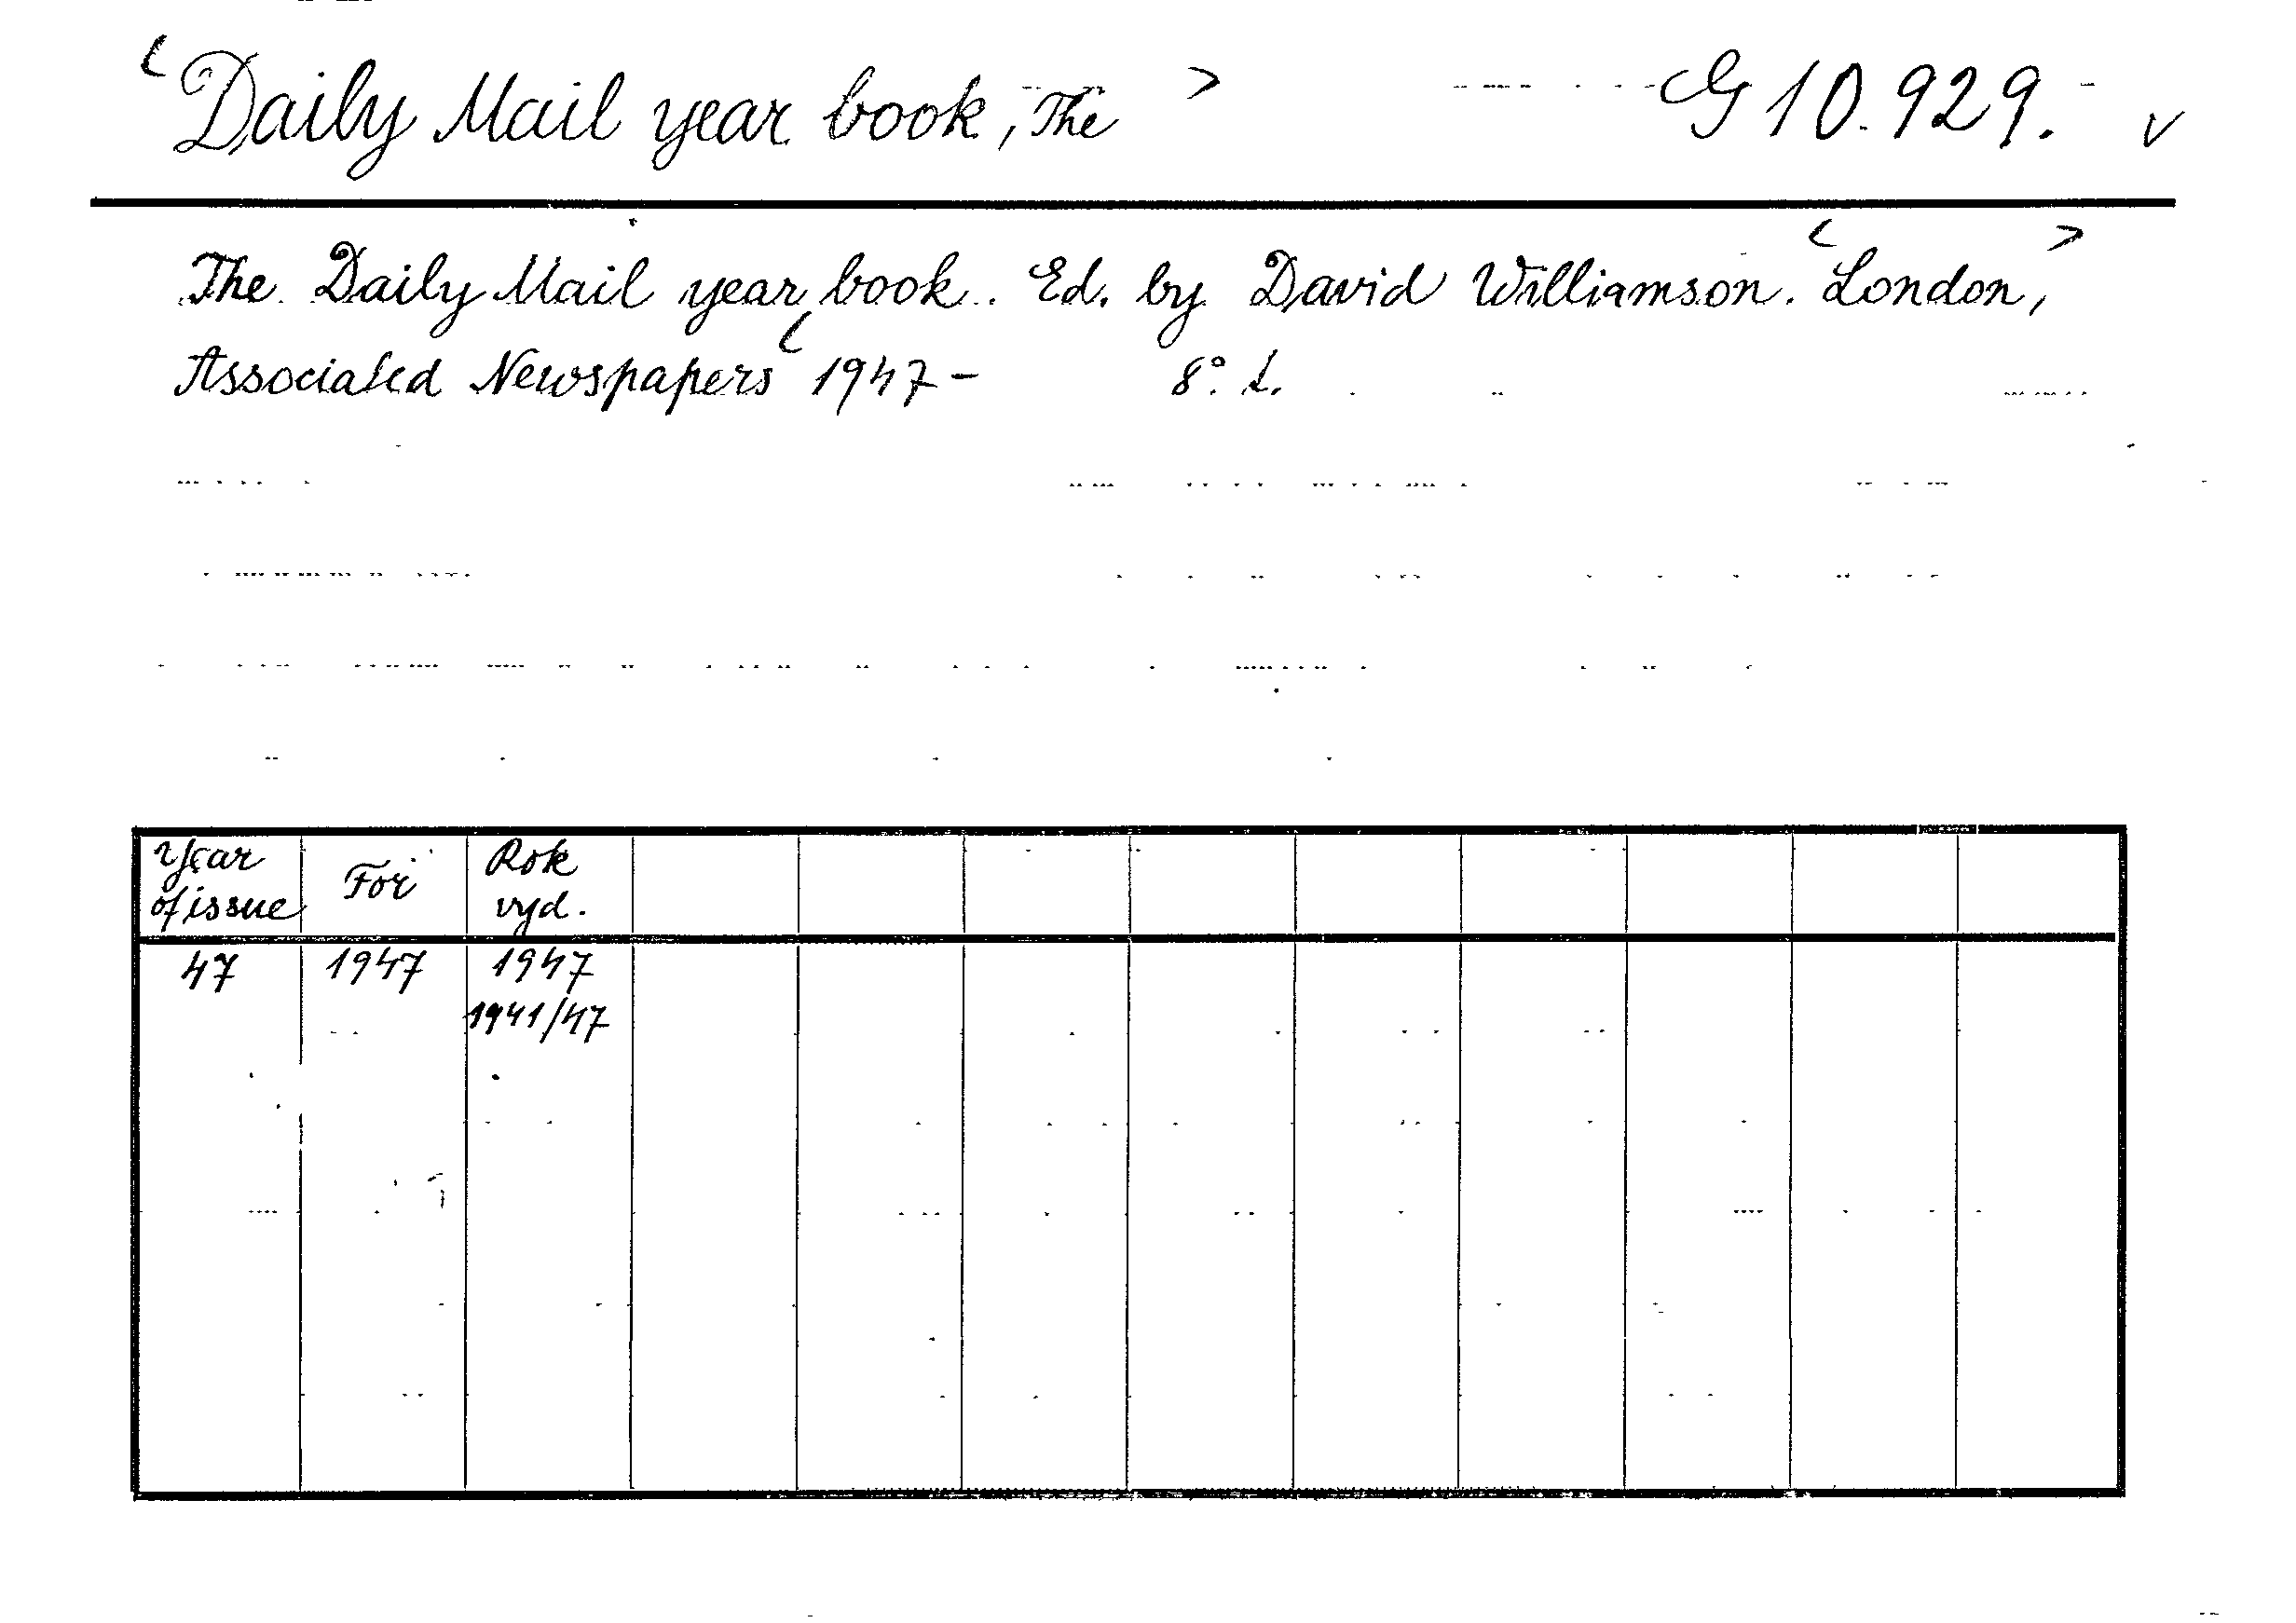 <Daily Mail year book, The> G 10.929. v
The Daily Mail year book. Ed. by David Williamson. <London,>
Associated Newspapers < 1947- 8°. L.
Year of issue For Rok vyd.
47 1947 1947
1941/47